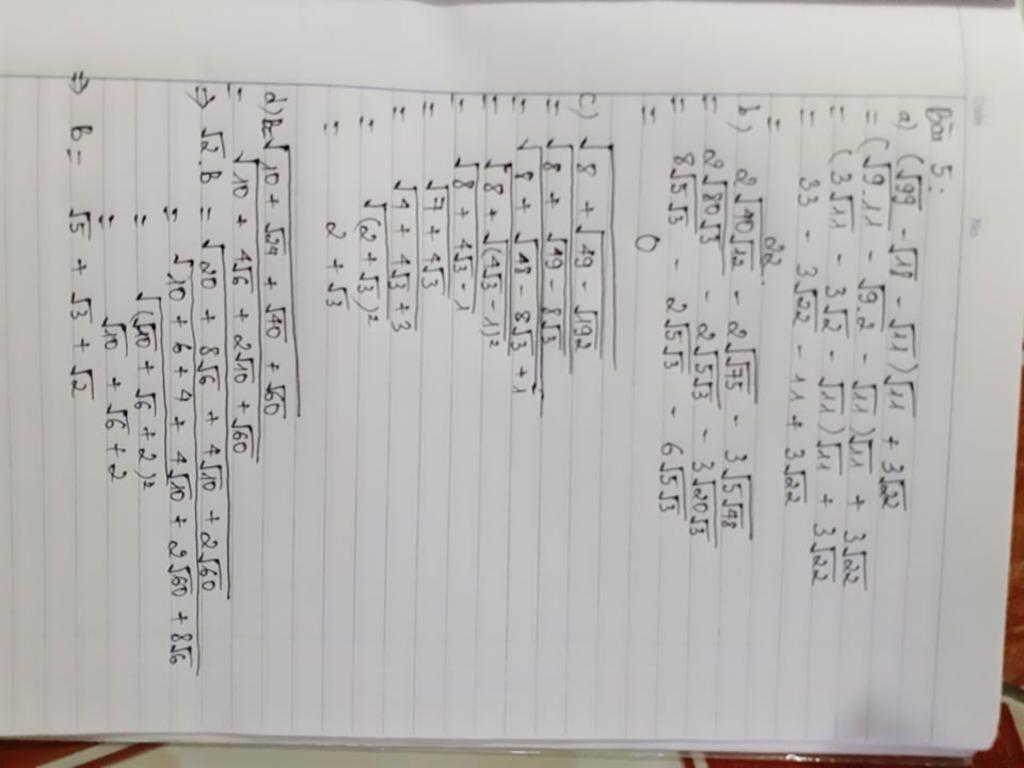 Date
No
Bài 5:
a) (√99 - √18 - √11)√11 + 3√22
= (√9.11 - √9.2 - √11)√11 + 3√22
= (3√11 - 3√2 - √11)√11 + 3√22
= 33 - 3√22 - 11 + 3√22
= 22
b) 2√40√12 - 2√√75 - 3√5√48
= 2√80√3 - 2√5√3 - 3√20√3
= 8√5√3 - 2√5√3 - 6√5√3
= 0
c) √8 + √49 - √192
= √8 + √49 - 8√3
= √8 + √48 - 8√3 + 1
= √8 + √(4√3 - 1)²
= √8 + 4√3 - 1
= √7 + 4√3
= √4 + 4√3 + 3
= √(2 + √3)²
= 2 + √3
d) B = √10 + √24 + √40 + √60
= √10 + 4√6 + 2√10 + √60
⇒ √2.B = √20 + 8√6 + 4√10 + 2√60
= √10 + 6 + 4 + 4√10 + 2√60 + 8√6
= √(√10 + √6 + 2)²
= √10 + √6 + 2
⇒ B = √5 + √3 + √2